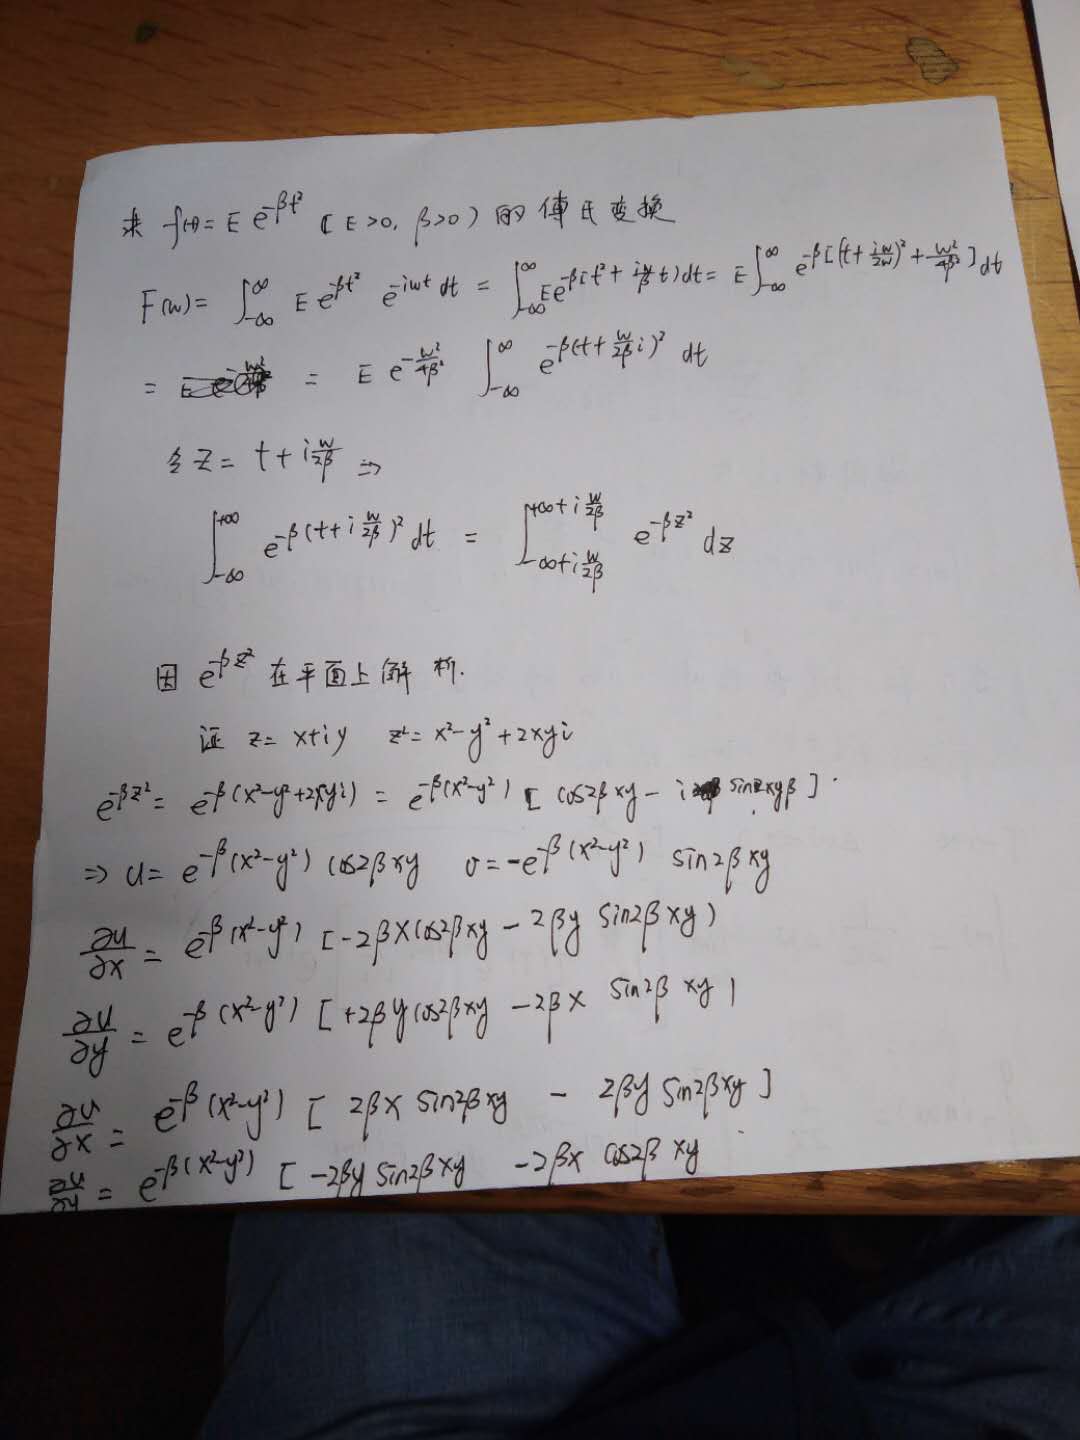 求 f(t)= E e^{-βt²} (E>0, β>0) 的傅氏变换
F(w)= ∫_{-∞}^{∞} E e^{-βt²} e^{-iwt} dt = ∫_{-∞}^{∞} E e^{-β[t²+ \frac{iw}{β} t)} dt = E ∫_{-∞}^{∞} e^{-β[(t+\frac{iw}{2w})²+\frac{w²}{4β²}]} dt
= = E e^{-\frac{w²}{4β²}} ∫_{-∞}^{∞} e^{-β(t+\frac{w}{2β}i)²} dt
令 z= t+i\frac{w}{2β} ⇒
∫_{-∞}^{+∞} e^{-β(t+i\frac{w}{2β})²} dt = ∫_{-∞+i\frac{w}{2β}}^{+∞+i\frac{w}{2β}} e^{-βz²} dz
因 e^{-βz²} 在平面上解析.
证 z= x+iy z²= x²-y²+2xyi
e^{-βz²}= e^{-β(x²-y²+2xyi)} = e^{-β(x²-y²)} [cos2βxy - i sin2xyβ]
⇒ u= e^{-β(x²-y²)} cos2βxy v= -e^{-β(x²-y²)} sin2βxy
\frac{∂u}{∂x}= e^{-β(x²-y²)} [-2βxcos2βxy - 2βy sin2βxy)
\frac{∂u}{∂y}= e^{-β(x²-y²)} [+2βycos2βxy -2βx sin2βxy)
\frac{∂v}{∂x}= e^{-β(x²-y²)} [2βx sin2βxy - 2βy sin2βxy]
= e^{-β(x²-y²)} [-2βy sin2βxy -2βx cos2βxy